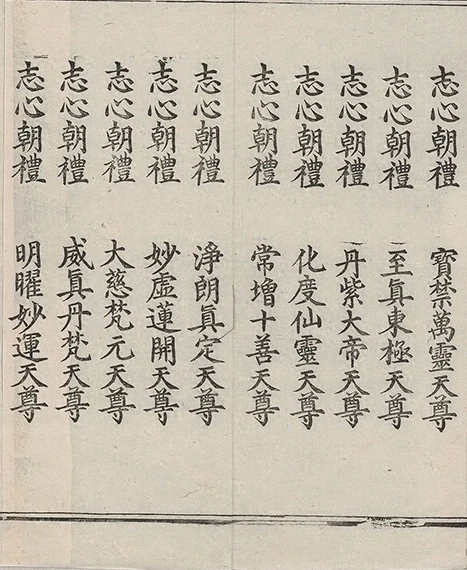 志心朝禮 寳禁萬靈天尊
志心朝禮 至眞東極天尊
志心朝禮 丹紫大帝天尊
志心朝禮 化度仙靈天尊
志心朝禮 常増十善天尊
志心朝禮 淨朗眞定天尊
志心朝禮 妙虛蓮開天尊
志心朝禮 大慈梵元天尊
志心朝禮 威眞丹梵天尊
志心朝禮 明曜妙運天尊